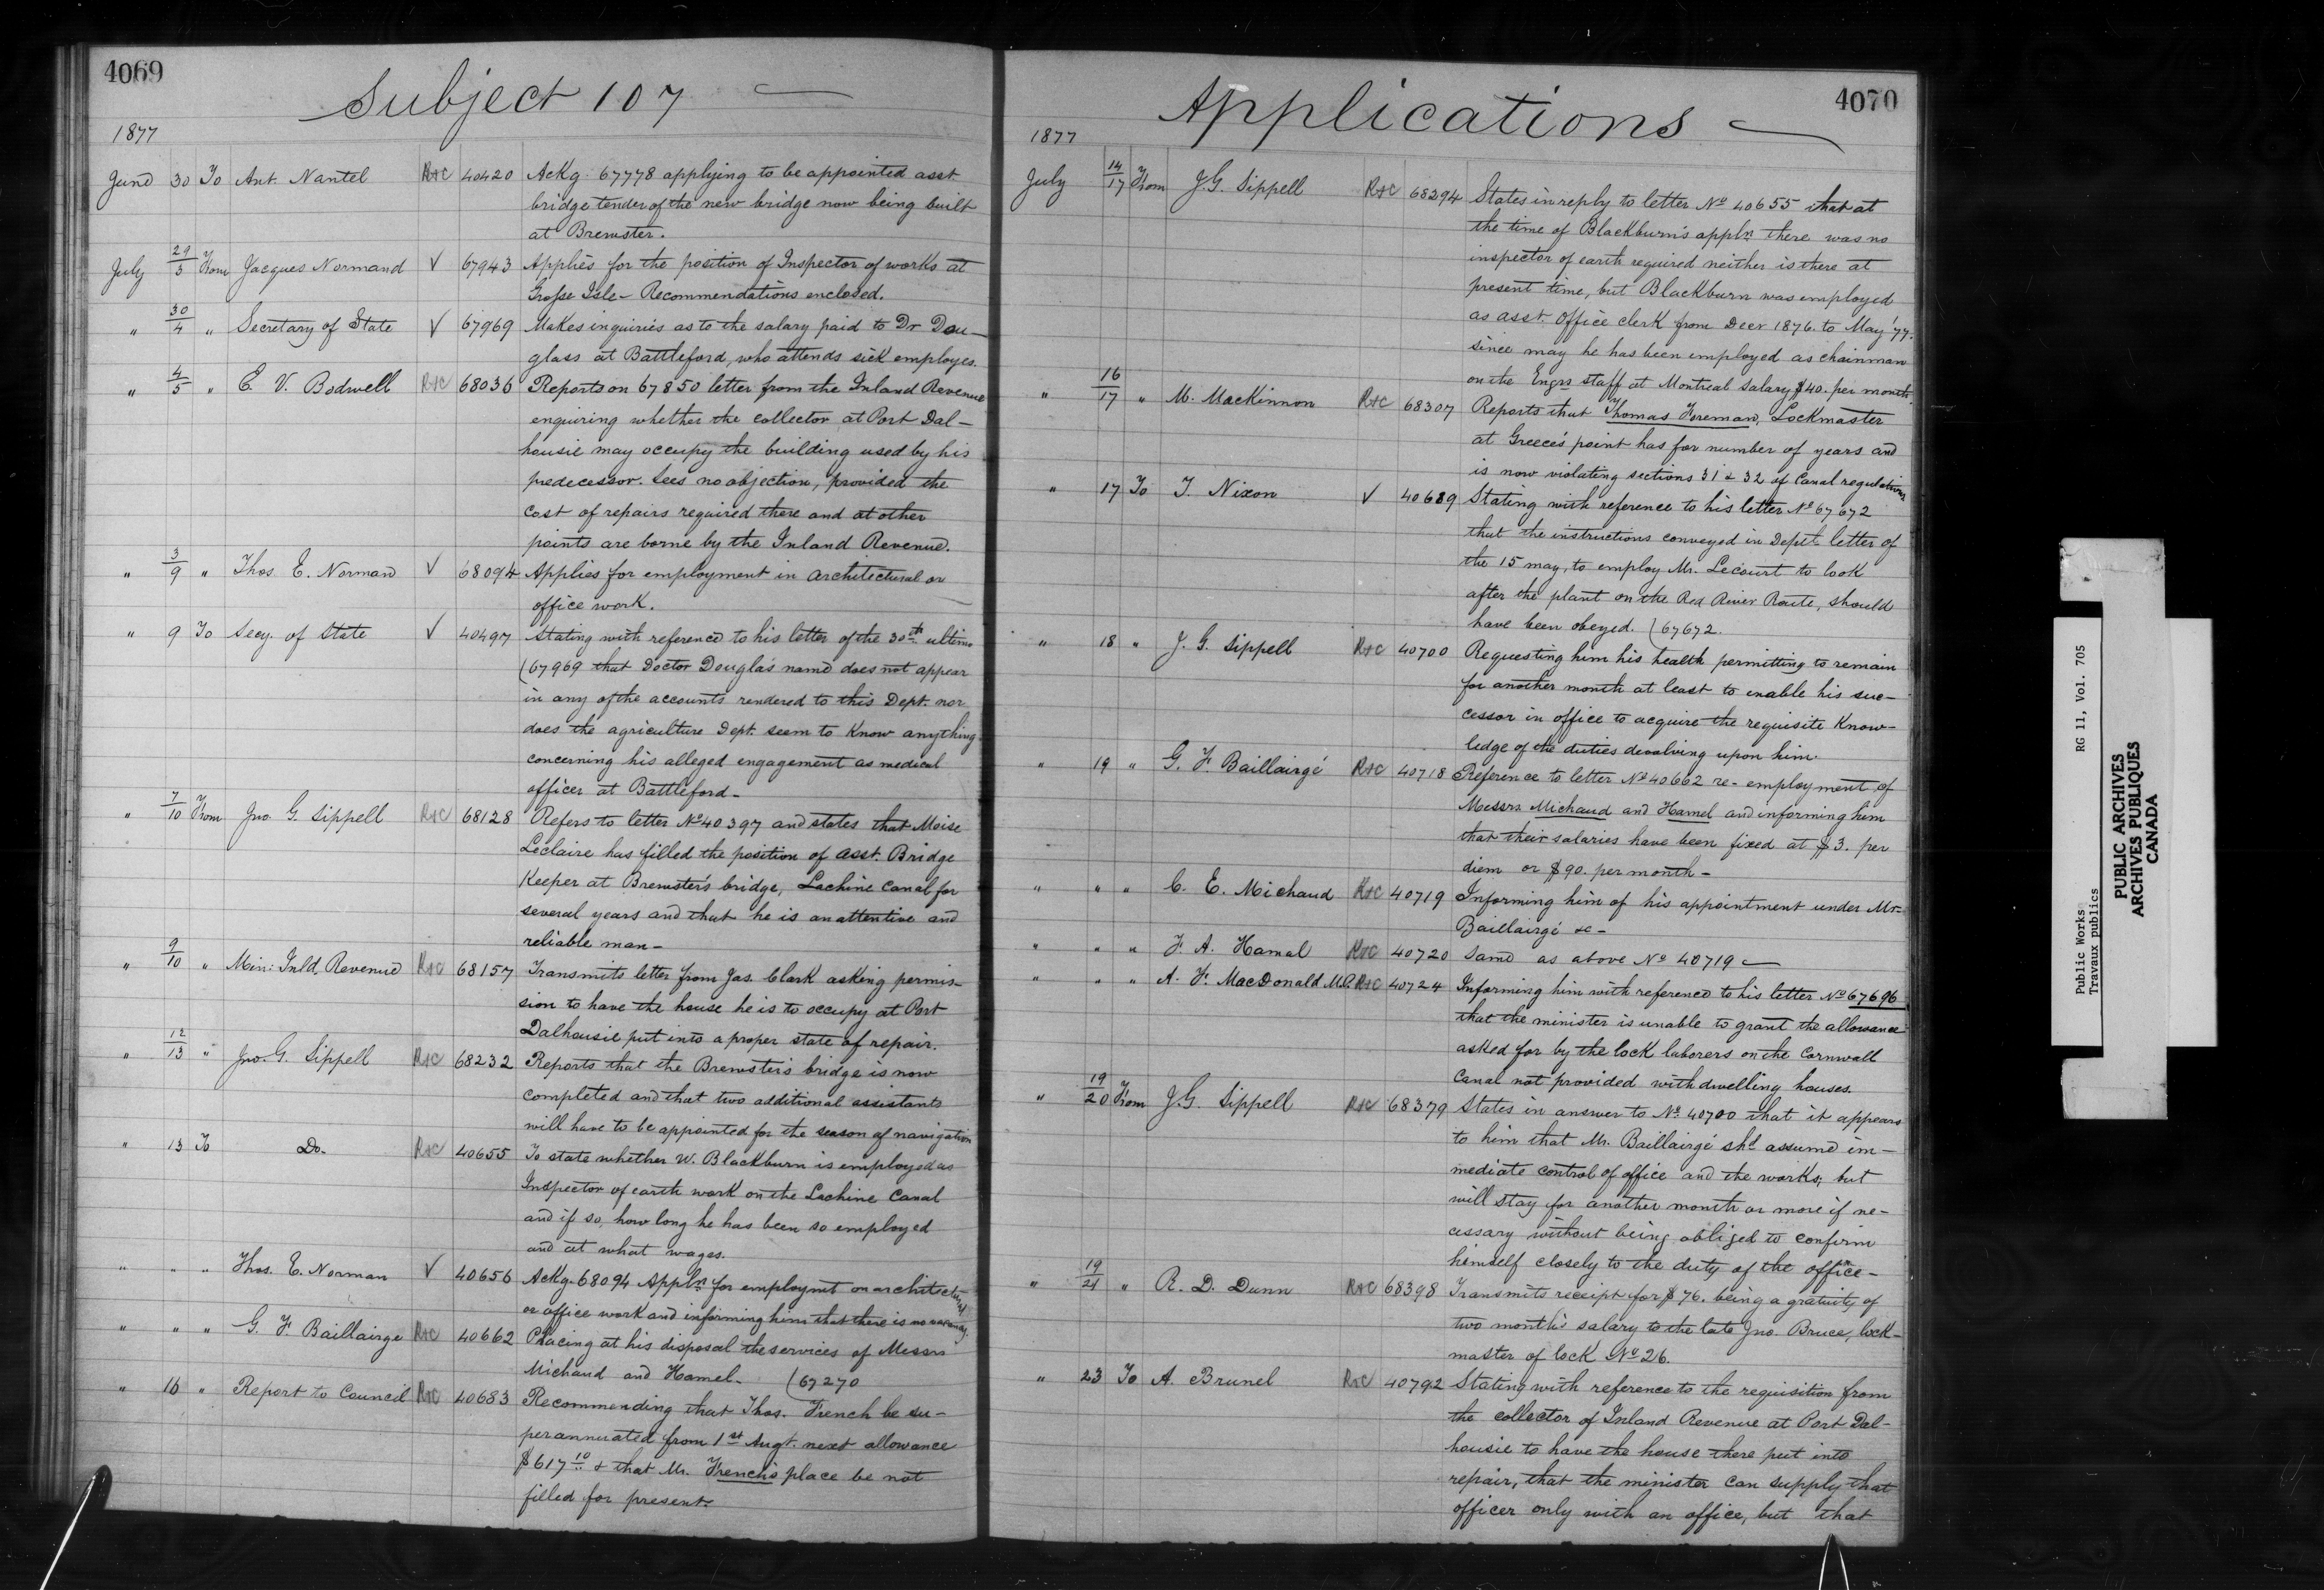 4069
Subject 107 —
1877
June 30 To Ant. Nantel R&C 40420 Ackg. 67778 applying to be appointed asst.
bridge tender of the new bridge now being built
at Brewster.
July 29/3 From Jacques Normand V 67943 Applies for the position of Inspector of works at
Grosse Isle – Recommendations enclosed.
" 30/4 " Secretary of State V 67969 Makes inquiries as to the salary paid to Dr Dou–
glass at Battleford, who attends sick employes.
" 4/5 " E. V. Bodwell R&C 68036 Reports on 67850 letter from the Inland Revenue
enquiring whether the collector at Port Dal–
housie may occupy the building used by his
predecessor. Sees no objection, provided the
cost of repairs required there and at other
points are borne by the Inland Revenue.
" 3/9 " Thos. E. Norman V 68094 Applies for employment in architectural or
office work.
" 9 To Secy. of State V 40497 Stating with reference to his letter of the 30th ultimo
(67969 that Doctor Douglas name does not appear
in any of the accounts rendered to this Dept. nor
does the agriculture Dept. seem to Know anything
concerning his alleged engagement as medical
officer at Battleford –
" 7/10 From Jno. G. Sippell R&C 68128 Refers to letter No 40397 and states that Moise
Leclaire has filled the position of asst. Bridge
Keeper at Brewster's bridge, Lachine Canal for
several years and that he is an attentive and
reliable man –
" 9/10 " Min: Inld, Revenue R&C 68157 Transmits letter from Jas. Clark asking permis–
sion to have the house he is to occupy at Port
Dalhousie put into a proper state of repair.
" 12/13 " Jno. G. Sippell R&C 68232 Reports that the Brewsters bridge is now
completed and that two additional assistants
will have to be appointed for the season of navigation
" 13 To Do. R&C 40655 To state whether W. Blackburn is employed as
Inspector of earth work on the Lachine Canal
and if so, how long he has been so employed
and at what wages.
" " " Thos. E. Norman V 40656 Ackg. 68094 Appln. for employmt on architectural
or office work and informing him that there is no vacancy.
" " " G. F. Baillairge R&C 40662 Placing at his disposal the services of Messrs
Michaud and Hamel – (67270
" 16 " Report to Council R&C 40683 Recommending that Thos. French be su–
perannuated from 1st Augt. next allowance
$617 10 & that Mr. French's place be not
filled for present.
4070
Applications —
1877
July 14/17 From J. G. Sippell R&C 68294 States in reply to letter No 40655 that at
the time of Blackburn's appln. there was no
inspector of earth required neither is there at
present time, but Blackburn was employed
as asst. office clerk from Decr 1876. to May '77.
since may he has been employed as chainman
on the Engrs staff at Montreal salary $40. per month.
" 16/17 " M. MacKinnon R&C 68307 Reports that Thomas Foreman, Lockmaster
at Greece's point has for number of years and
is now violating sections 31 & 32 of Canal regulations
" 17 To T. Nixon V 40689 Stating with reference to his letter No 67672
that the instructions conveyed in Depl. letter of
the 15 may, to employ Mr. Lecourt to look
after the plant on the Red River Route, should
have been obeyed. (67672.
" 18 " J. G. Sippell R&C 40700 Requesting him his health permitting to remain
for another month at least to enable his suc–
cessor in office to acquire the requisite Know–
ledge of the duties devolving upon him.
" 19 " G. F. Baillairgé R&C 40718 Reference to letter No 40662 re – employment of
Messrs. Michaud and Hamel and informing him
that their salaries have been fixed at $3. per
diem or $90. per month –
" " " C. E. Michaud R&C 40719 Informing him of his appointment under Mr.
Baillairgé &c –
" " " F. A. Hamal R&C 40720 Same as above No 40719 —
" " " A. F. MacDonald M.P. R&C 40724 Informing him with reference to his letter No 67696
that the minister is unable to grant the allowance
asked for by the lock laborers on the Cornwall
Canal not provided with dwelling houses.
" 19/20 From J. G. Sippell R&C 68379 States in answer to No. 40700 that it appears
to him that Mr. Baillairgé shd assume im–
mediate control of office and the works; but
will stay for another month or more if ne–
cessary without being obliged to confirm
himself closely to the duty of the office –
" 19/21 " R. D. Dunn R&C 68398 Transmits receipt for $76. being a gratuity of
two month's salary to the late Jno. Bruce, lock–
master of lock No 26.
" 23 To A. Brunel R&C 40792 Stating with reference to the requisition from
the collector of Inland Revenue at Port Dal–
housie to have the house there put into
repair, that the minister can supply that
officer only with an office, but that
Public Works RG 11, Vol. 705
Travaux publics
PUBLIC ARCHIVES
ARCHIVES PUBLIQUES
CANADA